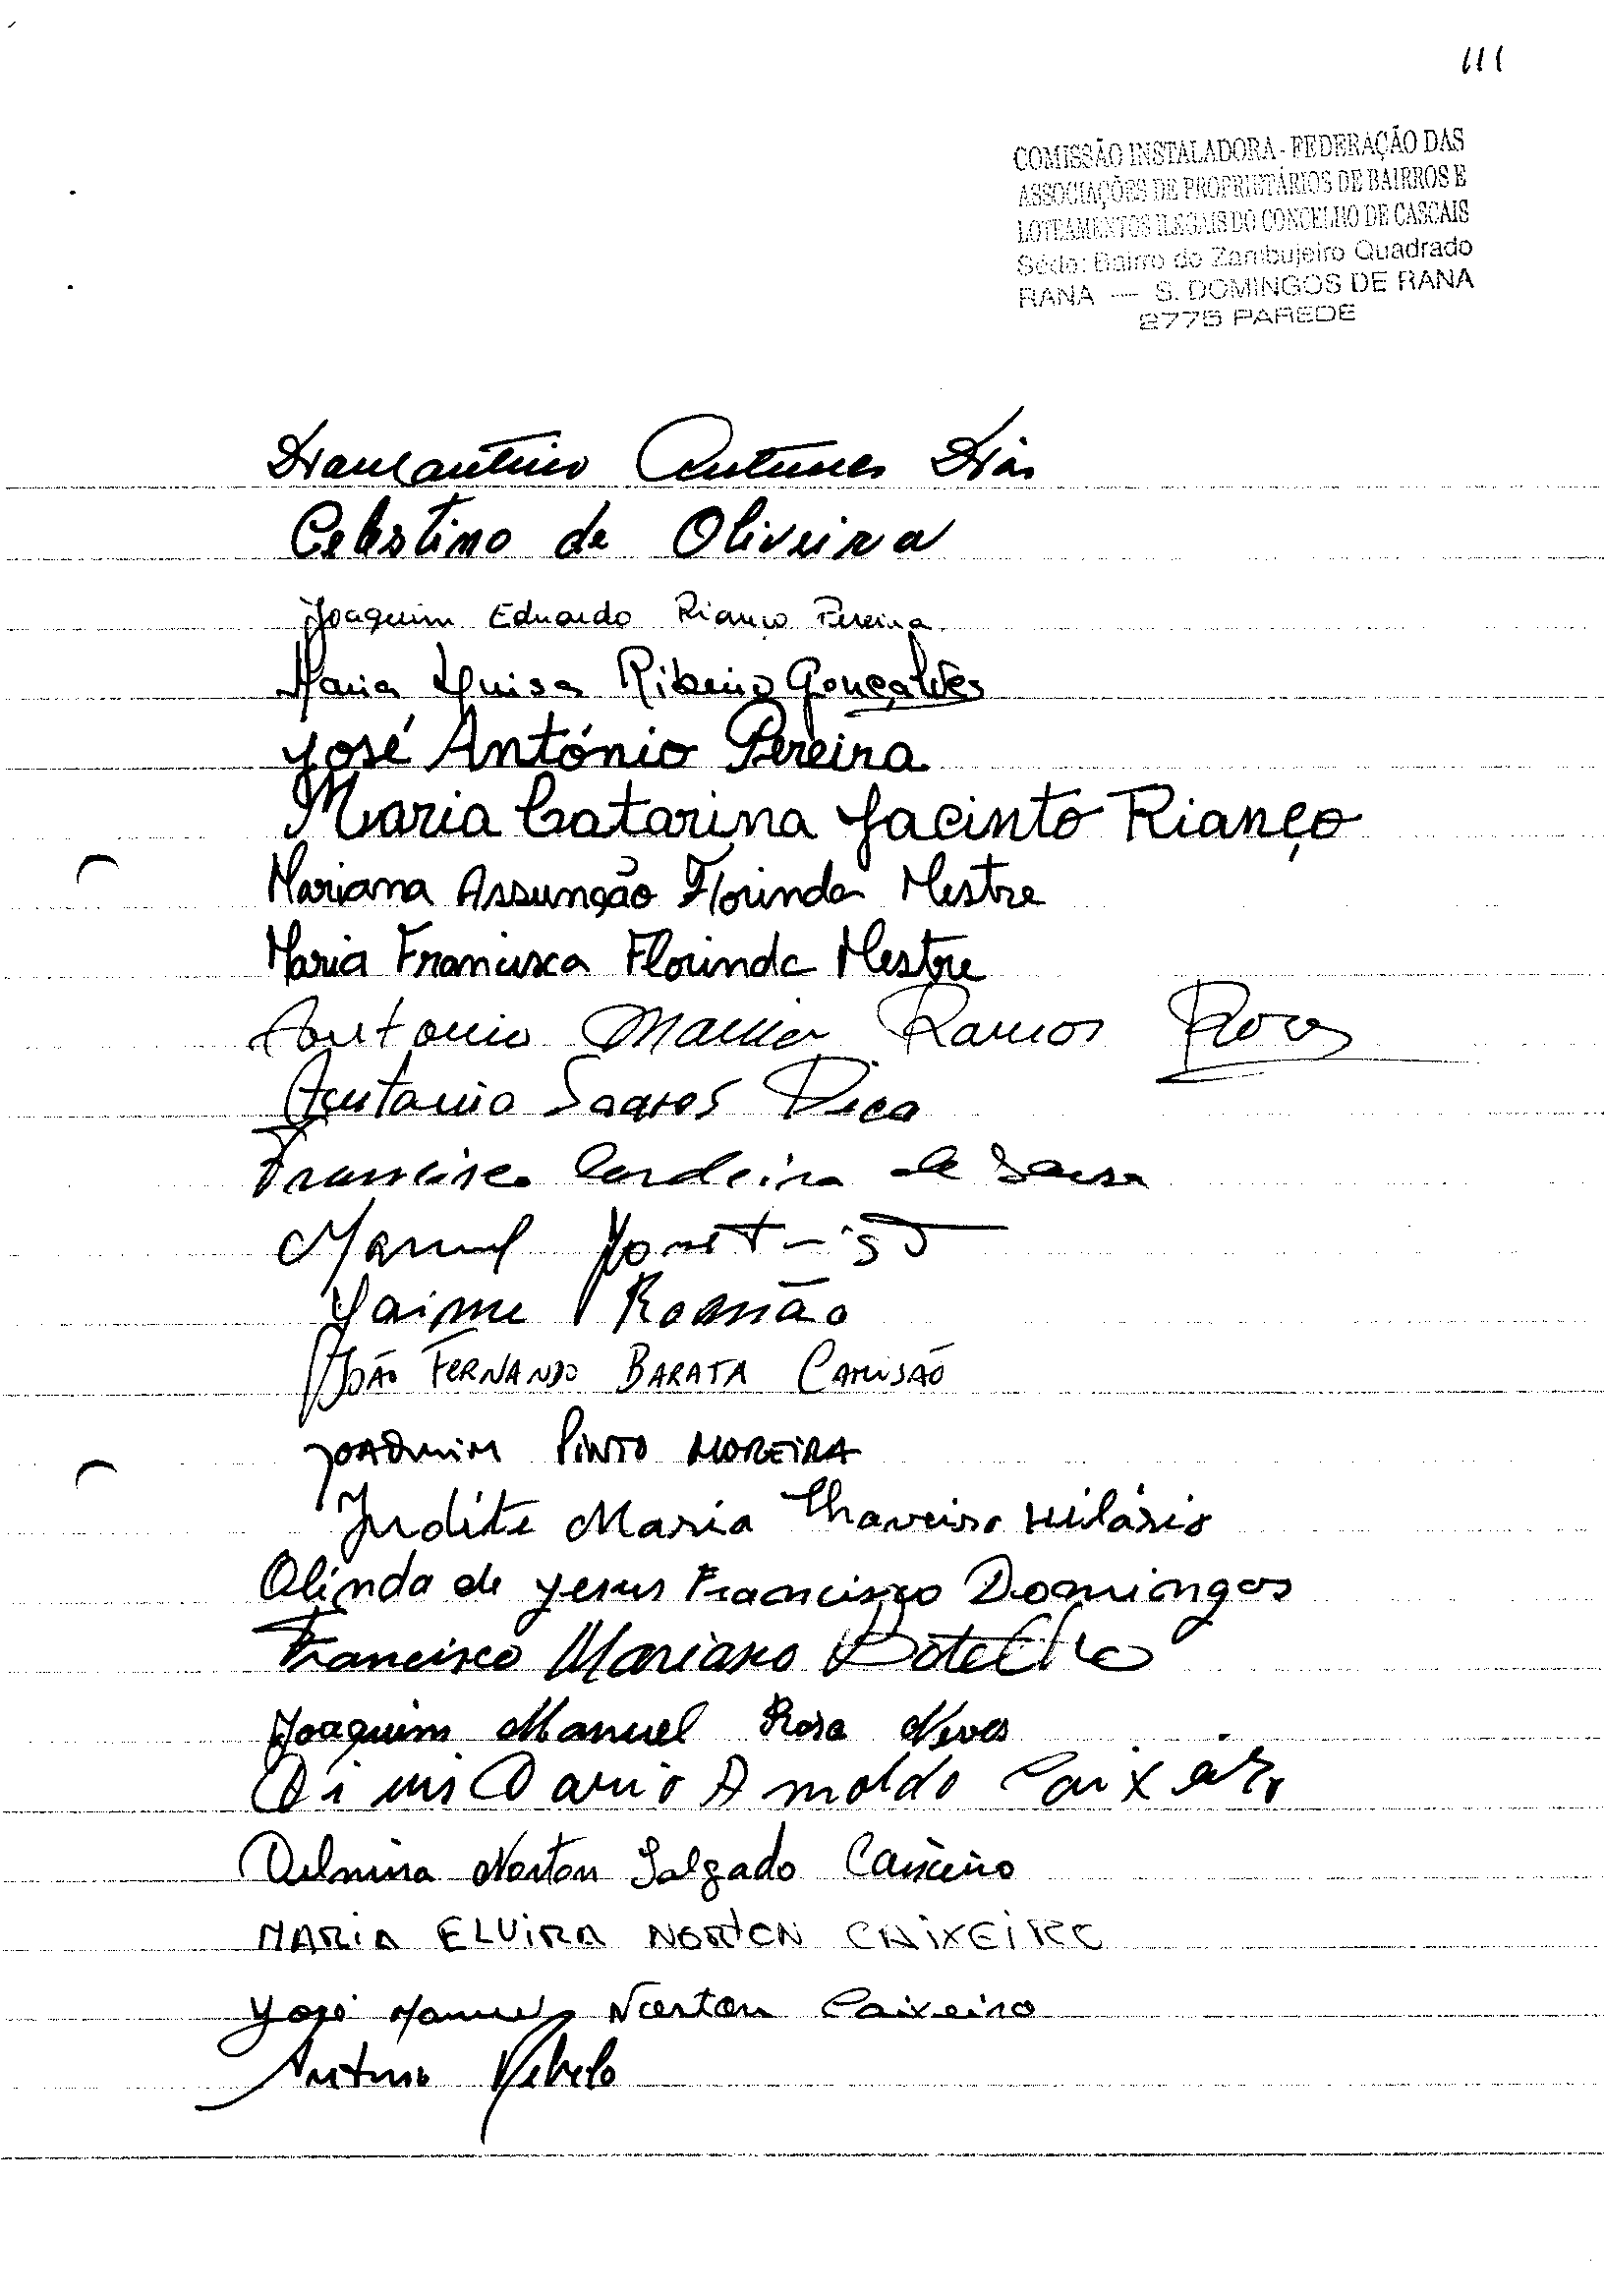 111
COMISSÃO INSTALADORA - FEDERAÇÃO DAS
ASSOCIAÇÕES DE PROPRIETÁRIOS DE BAIRROS E
LOTEAMENTOS ILEGAIS DO CONCELHO DE CASCAIS
Séde: Bairro do Zambujeiro Quadrado
RANA — S. DOMINGOS DE RANA
2775 PAREDE
Diamantino Antunes Dias
Celestino de Oliveira
Joaquim Eduardo Rianço Pereira
Maria Luisa Ribeiro Gonçalves
José António Pereira
Maria Catarina Jacinto Rianço
Mariana Assunção Florinda Mestre
Maria Francisca Florinda Mestre
Antonio Maria Ramos Rosa
Antonio Soares Dica
Francisco Cordeiro de Sousa
Manuel
Jaime Romão
João FERNANDO BARATA CAMISÃO
JOAQUIM PINTO MOREIRA
Judite Maria Chaveiro Hilário
Olinda de Jesus Francisco Domingos
Francisco Mariano Botelho
Joaquim Manuel Rosa Neves
Dinis Dario Arnoldo Caixeiro
Delmina Norton Salgado Caixeiro
MARIA ELVIRA NORTON CAIXEIRO
José Manuel Norton Caixeiro
Antonio Rebelo